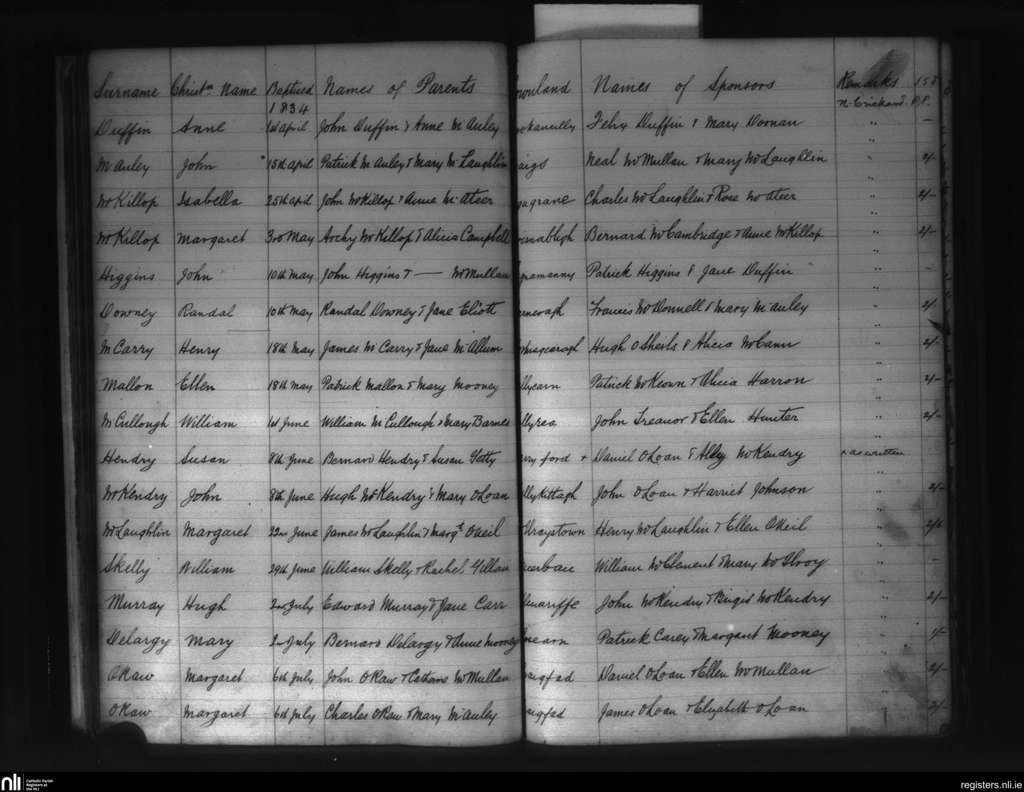 Surname Christn Name Baptised Names of Parents ownland Names of Sponsors Remarks 158
1834 N. Crickard P.P.
Duffin Anne 1st April John Duffin & Anne McAuley Felix Duffin & Mary Doonan " –
McAuley John 15th April Patrick McAuley & Mary McLaughlin aigs Neal McMullan & Mary McLaughlin " 2/-
McKillop Isabella 25th April John McKillop & Anne McAteer agrane Charles McLaughlin & Rose McAteer " 2/-
McKillop Margaret 3rd May Archy McKillop & Alicia Campbell Bernard McCambridge & Anne McKillop " 2/-
Higgins John 10th May John Higgins & — McMullan Patrick Higgins & Jane Duffin " –
Downey Randal 10th May Randal Downey & Jane Eliott Francis McDonnell & Mary McAuley " 2/-
McCarry Henry 18th May James McCarry & Jane McAllum Hugh OSheils & Alicia McCann " 2/-
Mallon Ellen 18th May Patrick Mallon & Mary Mooney llycarn Patrick McKeown & Alicia Harron " 2/-
McCullough William 1st June William McCullough & Mary Barnes llyrea John Treanor & Ellen Hunter " 2/-
Hendry Susan 8th June Bernard Hendry & Susan Getty ford + Daniel OLoan & Ally McKendry + as written
McKendry John 8th June Hugh McKendry & Mary OLoan llyKittagh John OLoan & Harriet Johnson " 2/-
McLaughlin Margaret 22nd June James McLaughlin & Margt OKeil thraystown Henry McLaughlin & Ellen OKeil " 2/6
Skelly William 29th June William Skelly & Rachel Gillan William McClement & Mary McIlroy " –
Murray Hugh 2nd July Edward Murray & Jane Carr nariffe John McKendry & Birgit McKendry " 2/-
Delargy Mary 2nd July Bernard Delargy & Anne Mooney Patrick Carey & Margaret Mooney " 1/-
OKaw Margaret 6th July John OKaw & Catherine McMullan aigfad Daniel OLoan & Ellen McMullan " 2/-
OKaw Margaret 6th July Charles OKaw & Mary McAuley aigfad James OLoan & Elizabeth OLoan 2/-
nli Catholic Parish Registers at the NLI
registers.nli.ie